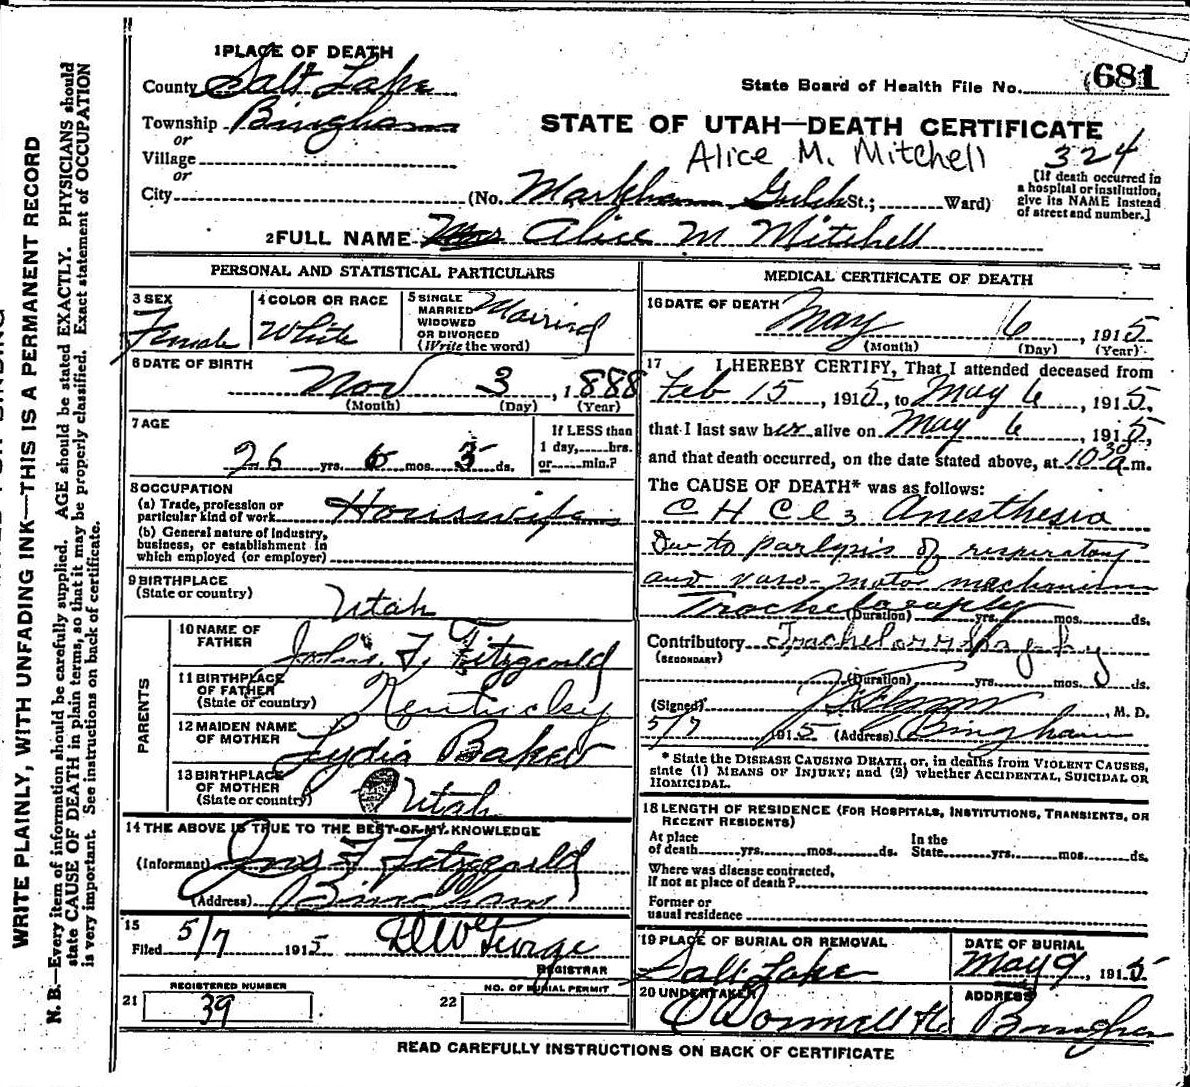 1 PLACE OF DEATH
County Salt Lake
State Board of Health File No. 681
Township Bingham
or
STATE OF UTAH—DEATH CERTIFICATE
Village
or
Alice M. Mitchell 324
City (No. Markham Gulch St.; Ward)
[If death occurred in
a hospital or institution,
give its NAME instead
of street and number.]
2 FULL NAME Mrs Alice M Mitchell
PERSONAL AND STATISTICAL PARTICULARS
3 SEX
Female
4 COLOR OR RACE
White
5 SINGLE
MARRIED
WIDOWED
OR DIVORCED
(Write the word)
6 DATE OF BIRTH
Nov 3, 1888
(Month) (Day) (Year)
7 AGE
26 yrs. 6 mos. 3 ds.
If LESS than
1 day, hrs.
or min.?
8 OCCUPATION
(a) Trade, profession or
particular kind of work Housewife
(b) General nature of industry,
business, or establishment in
which employed (or employer)
9 BIRTHPLACE
(State or country)
Utah
PARENTS
10 NAME OF
FATHER
F. Fitzgerald
11 BIRTHPLACE
OF FATHER
(State or country)
Kentucky
12 MAIDEN NAME
OF MOTHER
Lydia Baker
13 BIRTHPLACE
OF MOTHER
(State or country)
Utah
14 THE ABOVE IS TRUE TO THE BEST OF MY KNOWLEDGE
(Informant) Jns F Fitzgerald
(Address) Bingham
15
Filed 5/7 1915
REGISTRAR
REGISTERED NUMBER
21 39
NO. OF BURIAL PERMIT
22
MEDICAL CERTIFICATE OF DEATH
16 DATE OF DEATH
May 6, 1915
(Month) (Day) (Year)
17 I HEREBY CERTIFY, That I attended deceased from
Feb 15, 1915, to May 6, 1915,
that I last saw her alive on May 6, 1915,
and that death occurred, on the date stated above, at 10 30 a m.
The CAUSE OF DEATH* was as follows:
C H Cl 3 Anesthesia
Due to parlysis of respiratory
and vaso-motor mechanism
(Duration) yrs. mos. ds.
Contributory Trachelorrhaphy
(SECONDARY)
(Duration) yrs. mos. ds.
(Signed) M. D.
5/7 1915 (Address) Bingham
* State the DISEASE CAUSING DEATH, or, in deaths from VIOLENT CAUSES,
state (1) MEANS OF INJURY; and (2) whether ACCIDENTAL, SUICIDAL OR
HOMICIDAL.
18 LENGTH OF RESIDENCE (FOR HOSPITALS, INSTITUTIONS, TRANSIENTS, OR
RECENT RESIDENTS)
At place
of death yrs. mos. ds.
In the
State yrs. mos. ds.
Where was disease contracted,
if not at place of death?
Former or
usual residence
19 PLACE OF BURIAL OR REMOVAL
Salt Lake
DATE OF BURIAL
May 9, 1915
20 UNDERTAKER
O'Donnell
ADDRESS
Bingham
READ CAREFULLY INSTRUCTIONS ON BACK OF CERTIFICATE
WRITE PLAINLY, WITH UNFADING INK—THIS IS A PERMANENT RECORD
N. B.—Every item of information should be carefully supplied. AGE should be stated EXACTLY. PHYSICIANS should
state CAUSE OF DEATH in plain terms, so that it may be properly classified. Exact statement of OCCUPATION
is very important. See instructions on back of certificate.